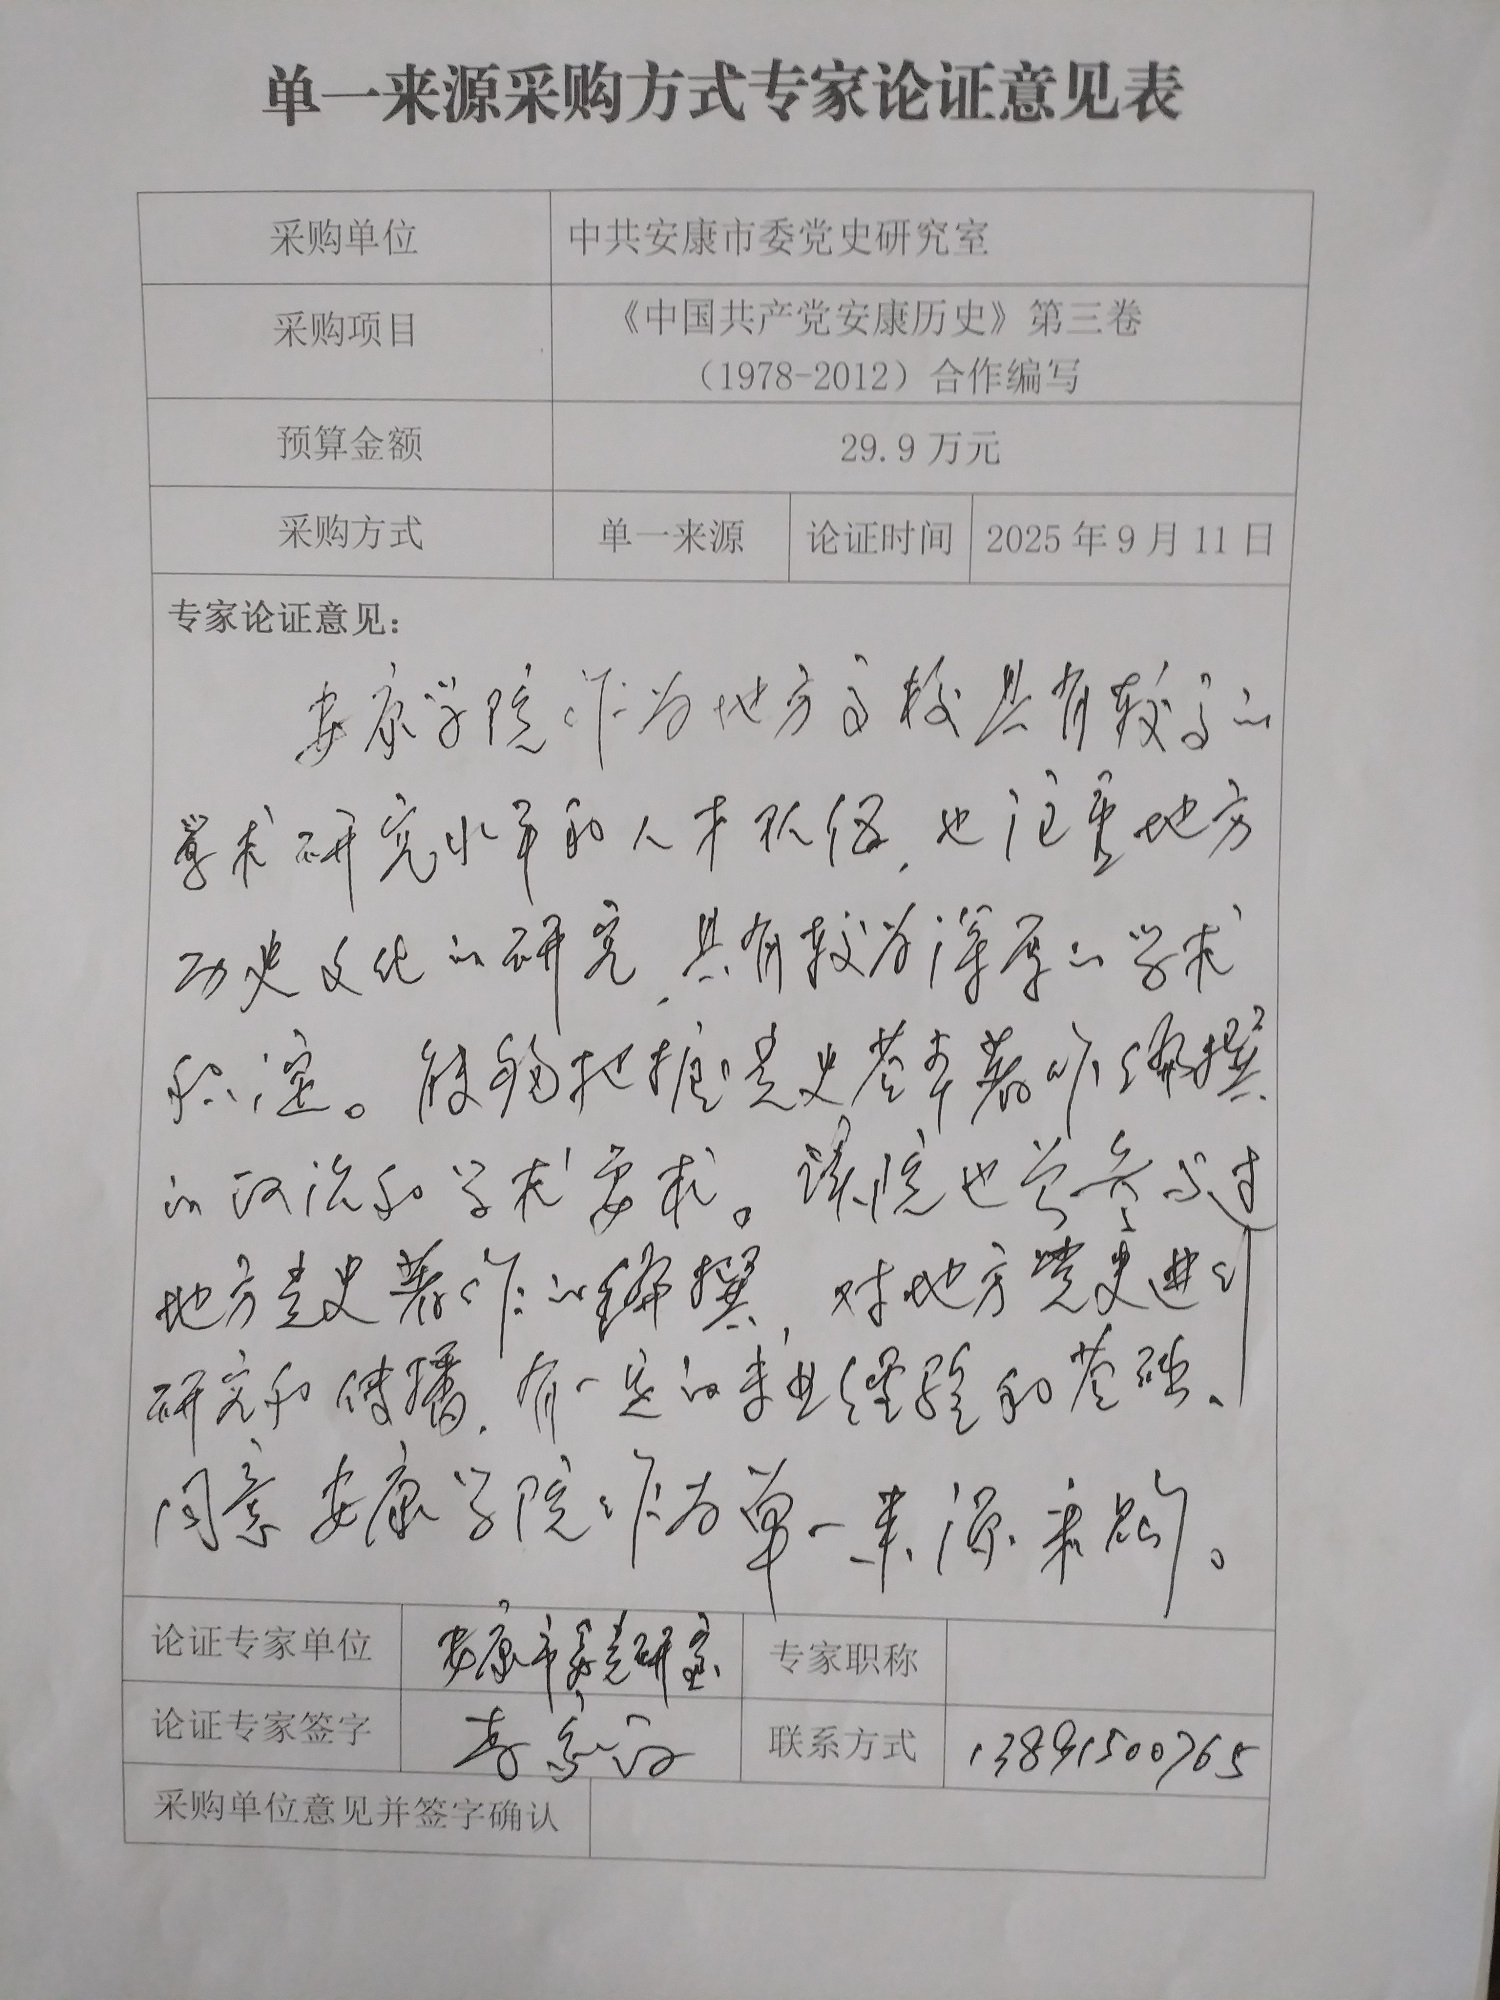 单一来源采购方式专家论证意见表
采购单位 中共安康市委党史研究室
采购项目 《中国共产党安康历史》第三卷
（1978-2012）合作编写
预算金额 29.9万元
采购方式 单一来源 论证时间 2025年9月11日
专家论证意见：
安康学院作为地方高校具有较高的
学术研究水平和人才队伍，也注重地方
历史文化的研究，具有较为深厚的学术
积淀。能够把握党史基本著作编撰
的政治和学术要求。该院也曾参与过
地方党史著作的编撰，对地方党史进行
研究和传播，有一定的专业经验和基础、
同意安康学院作为单一来源采购。
论证专家单位 安康市委党研室 专家职称
论证专家签字 李 联系方式 13891500765
采购单位意见并签字确认